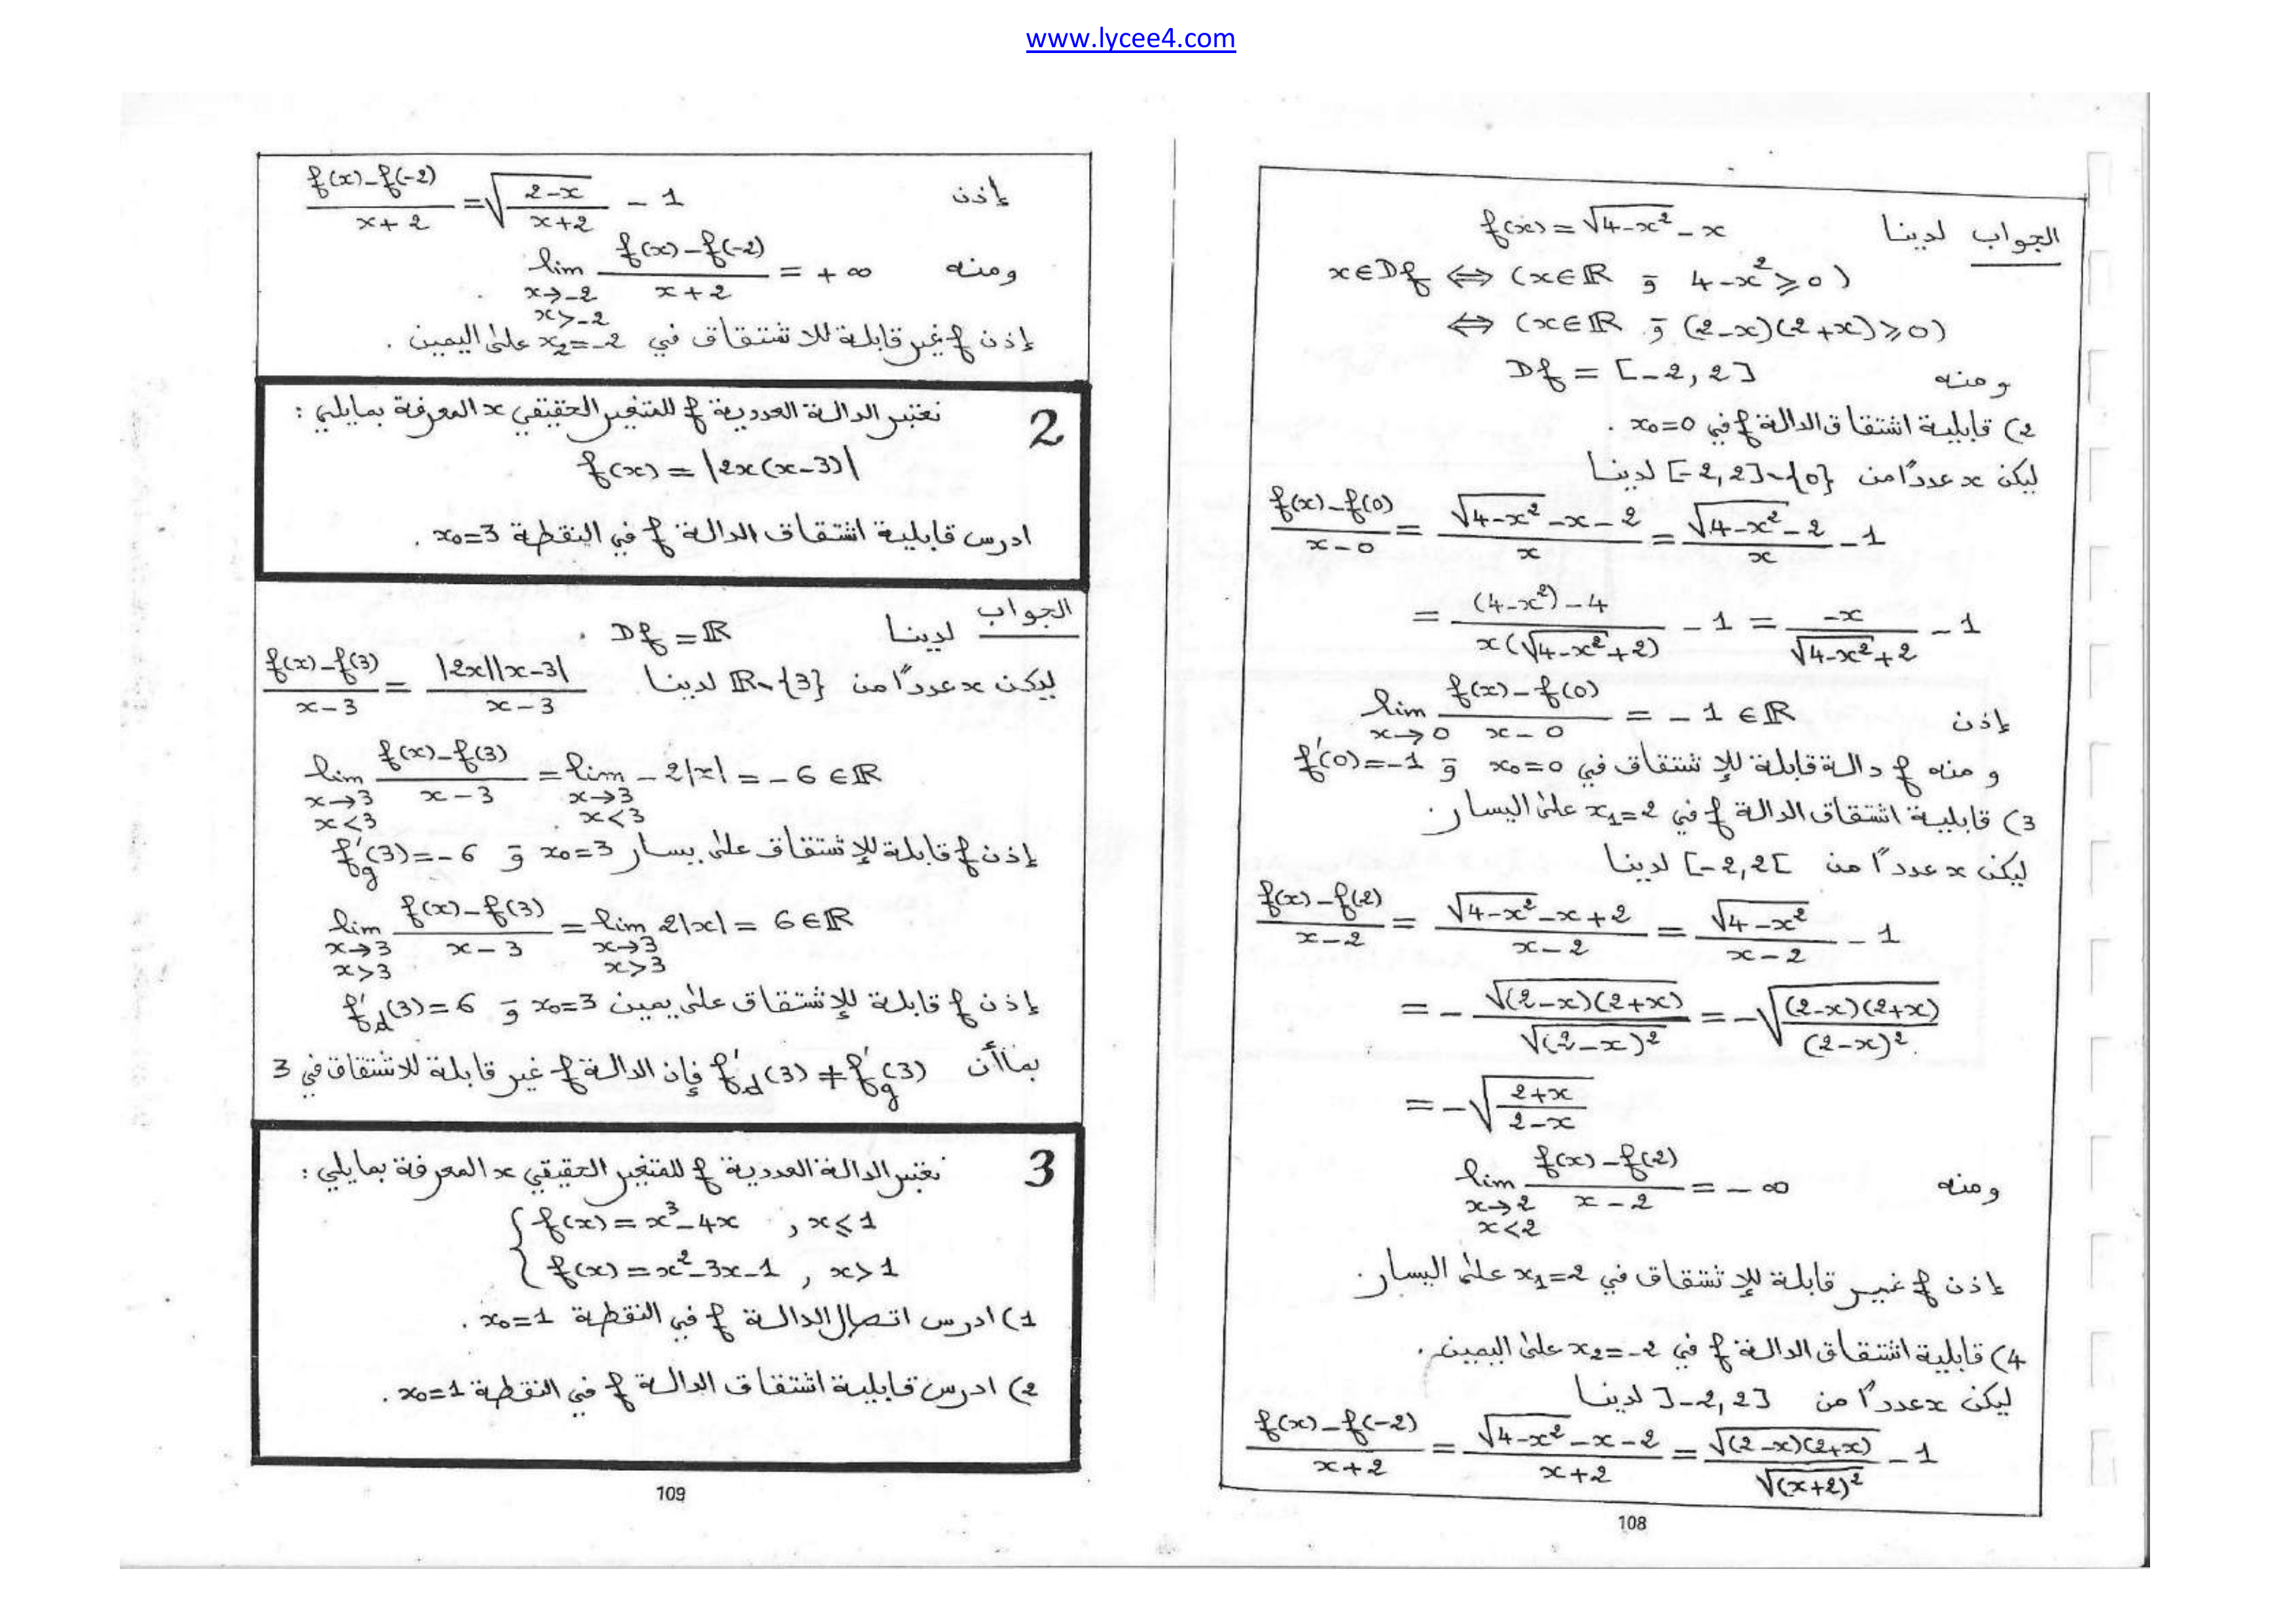 www.lycee4.com
الجواب لدينا f(x) = √(4-x²) - x
x∈Df ⟺ (x∈ℝ و 4-x² ⩾ 0)
⟺ (x∈ℝ و (2-x)(2+x) ⩾ 0)
ومنه Df = [-2, 2]
2) قابلية اشتقاق الدالة f في x₀=0 .
ليكن x عددًا من [-2, 2]∖{0} لدينا
(f(x)-f(0))/(x-0) = (√(4-x²) - x - 2)/x = (√(4-x²) - 2)/x - 1
= ((4-x²)-4)/(x(√(4-x²)+2)) - 1 = -x/(√(4-x²)+2) - 1
إذن lim x→0 (f(x)-f(0))/(x-0) = -1 ∈ ℝ
ومنه f دالة قابلة للإشتقاق في x₀=0 و f'(0)=-1
3) قابلية اشتقاق الدالة f في x₁=2 على اليسار.
ليكن x عددًا من [-2, 2[ لدينا
(f(x)-f(2))/(x-2) = (√(4-x²) - x + 2)/(x-2) = √(4-x²)/(x-2) - 1
= - √((2-x)(2+x))/√((2-x)²) = -√((2-x)(2+x)/(2-x)²)
= -√((2+x)/(2-x))
ومنه lim x→2 x<2 (f(x)-f(2))/(x-2) = -∞
إذن f غير قابلة للإشتقاق في x₁=2 على اليسار.
4) قابلية اشتقاق الدالة f في x₂=-2 على اليمين.
ليكن x عددًا من ]-2, 2] لدينا
(f(x)-f(-2))/(x+2) = (√(4-x²) - x - 2)/(x+2) = √((2-x)(2+x))/√((x+2)²) - 1
108
إذن (f(x)-f(-2))/(x+2) = √((2-x)/(x+2)) - 1
ومنه lim x→-2 x>-2 (f(x)-f(-2))/(x+2) = +∞
إذن f غير قابلة للاشتقاق في x₂=-2 على اليمين .
2 نعتبر الدالة العددية f للمتغير الحقيقي x المعرفة بمايلي :
f(x) = |2x(x-3)|
ادرس قابلية اشتقاق الدالة f في النقطة x₀=3 .
الجواب لدينا Df = ℝ .
ليكن x عددًا من ℝ∖{3} لدينا (f(x)-f(3))/(x-3) = |2x||x-3|/(x-3)
lim x→3 x<3 (f(x)-f(3))/(x-3) = lim x→3 x<3 -2|x| = -6 ∈ ℝ
إذن f قابلة للإشتقاق على يسار x₀=3 و f'g(3)=-6
lim x→3 x>3 (f(x)-f(3))/(x-3) = lim x→3 x>3 2|x| = 6 ∈ ℝ
إذن f قابلة للإشتقاق على يمين x₀=3 و f'd(3)=6
بما أن f'd(3) ≠ f'g(3) فإن الدالة f غير قابلة للاشتقاق في 3
3 نعتبر الدالة العددية f للمتغير الحقيقي x المعرفة بمايلي :
{ f(x) = x³-4x , x⩽1
{ f(x) = x²-3x-1 , x>1
1) ادرس اتصال الدالة f في النقطة x₀=1 .
2) ادرس قابلية اشتقاق الدالة f في النقطة x₀=1 .
109